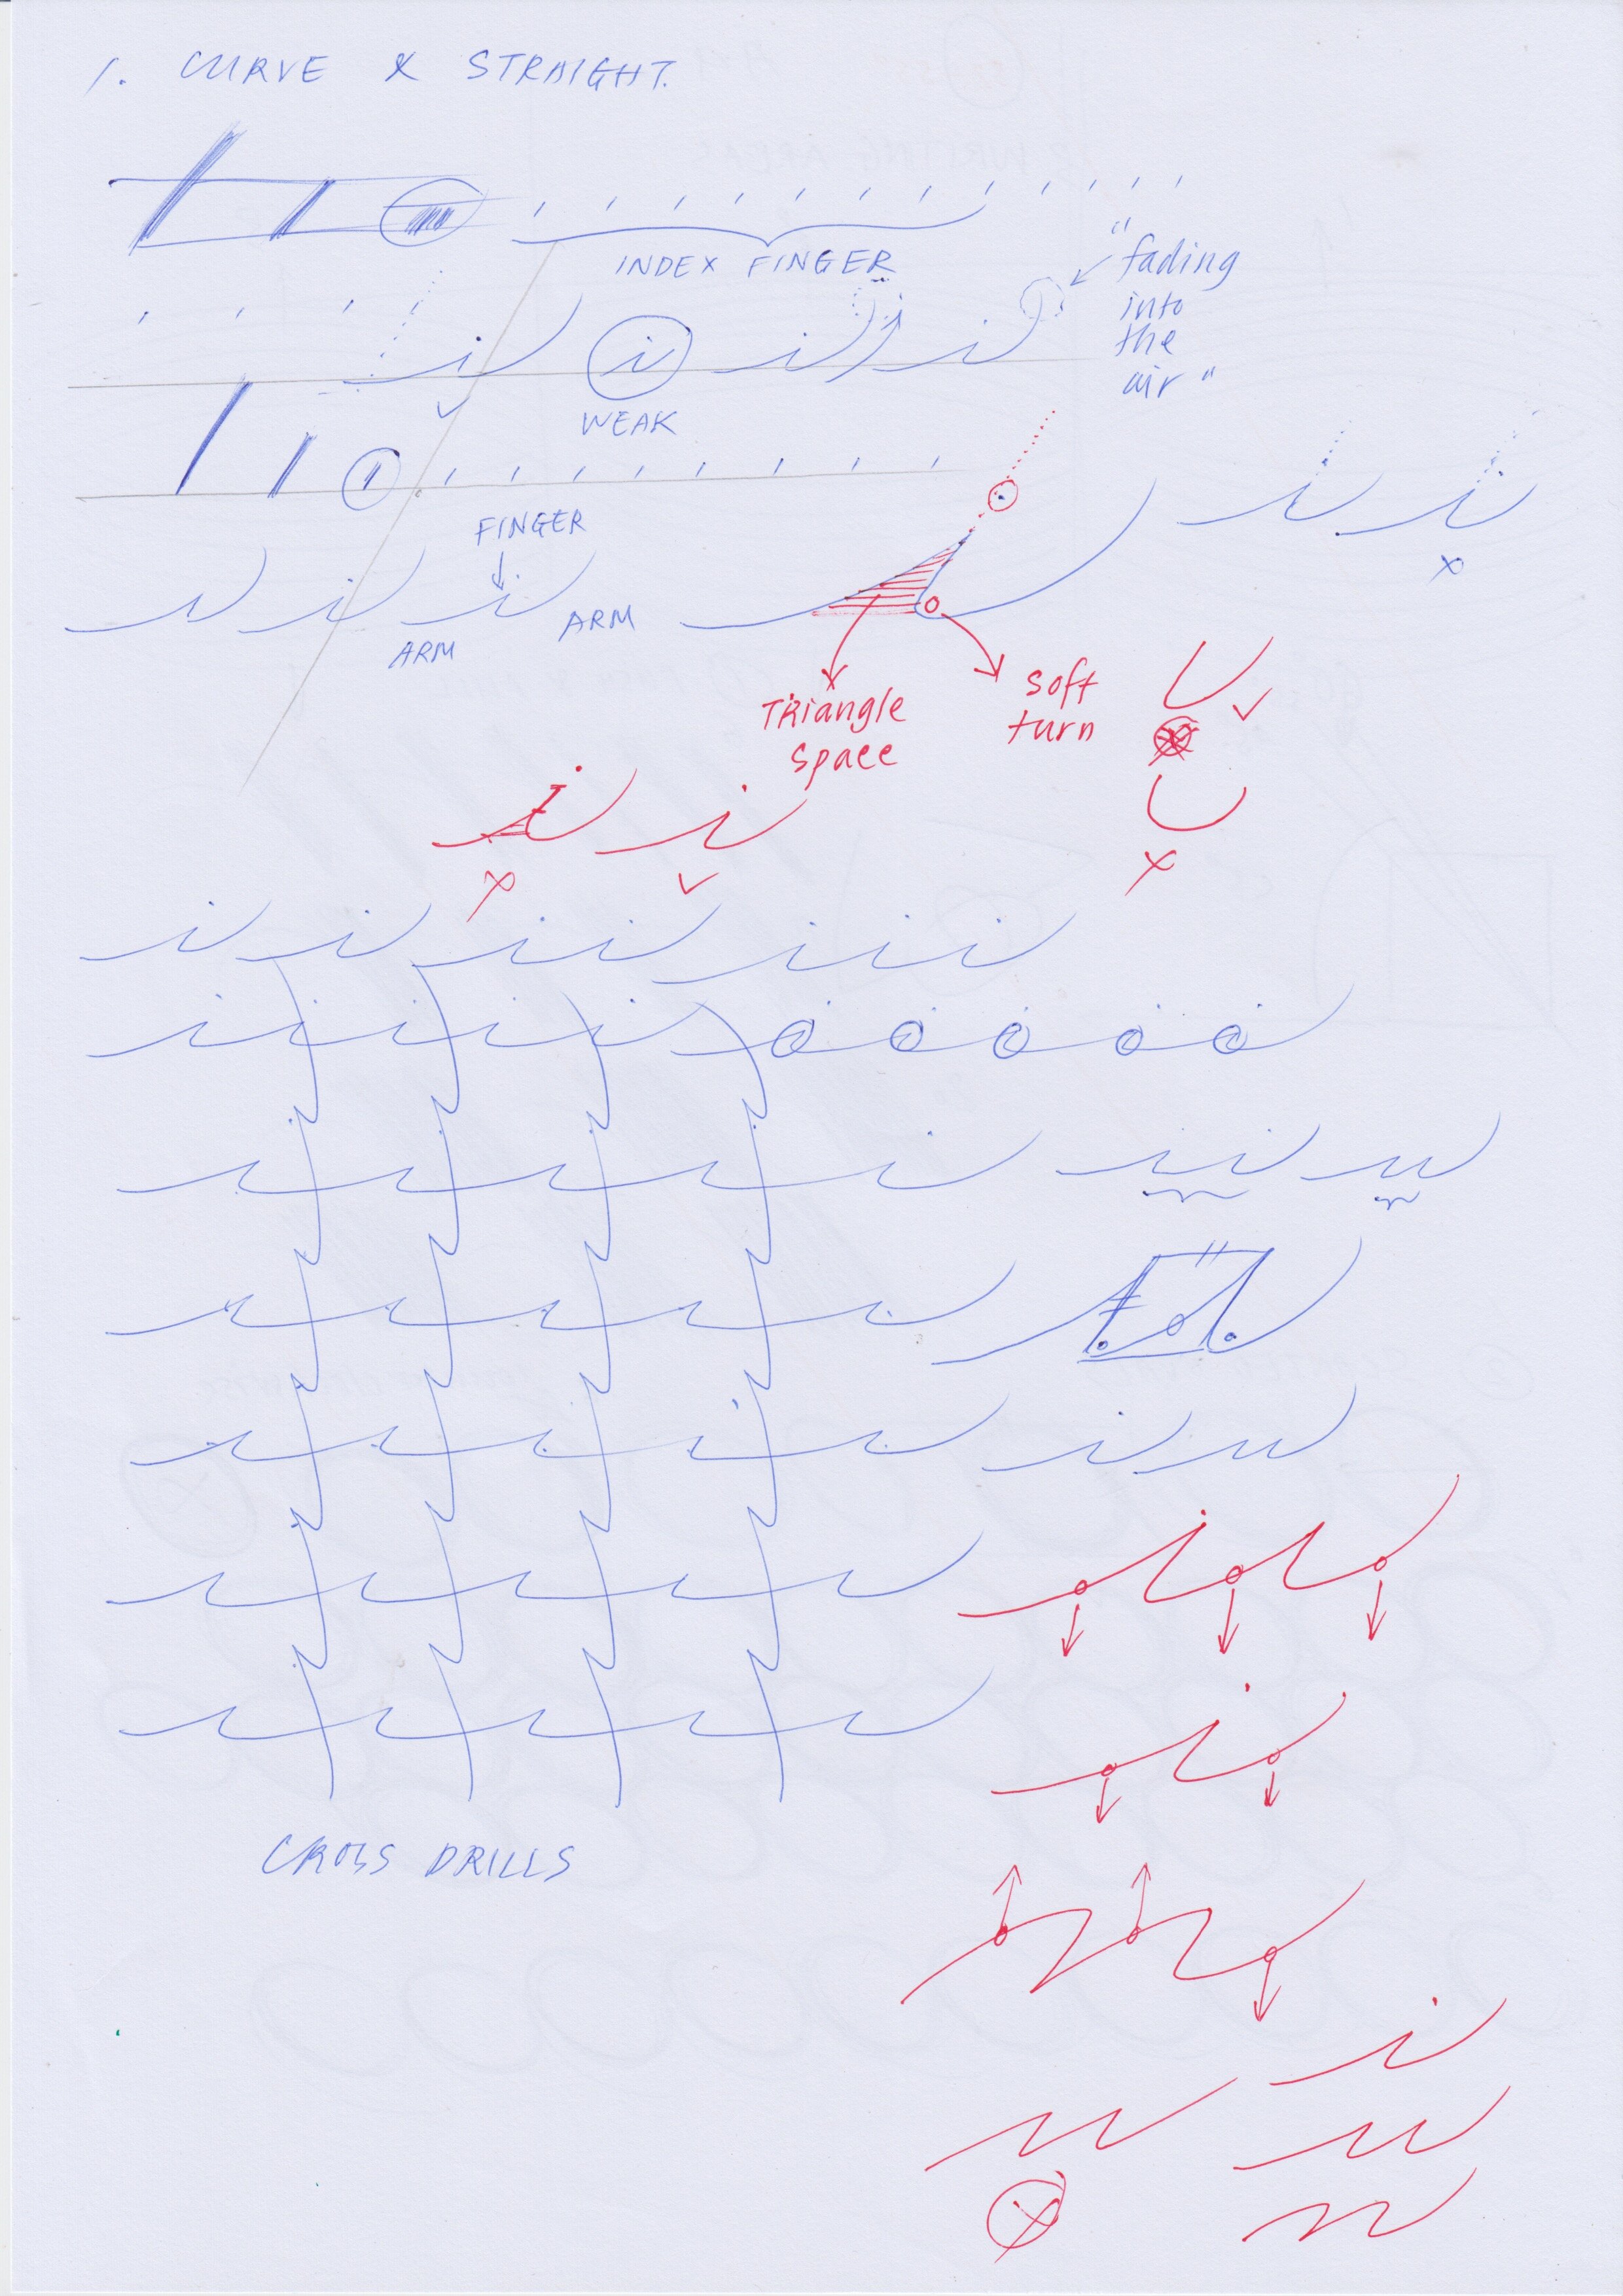 1. CURVE & STRAIGHT.
INDEX FINGER
"fading
into
the
air"
WEAK
FINGER
ARM
ARM
TRiangle
space
soft
turn
CROSS DRILLS